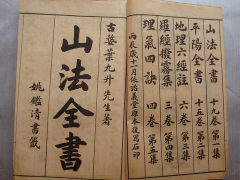 山法全書 十九卷 第一集
平陽全書 十五卷 第二集
地理六經註 六卷 第三集
羅經撥霧集 三卷 第四集
理氣四訣 四卷 第五集
丙辰歲十一月依治義堂 復寫石印
古婺葉九升先生著
山法全書
姚鑑清書籤